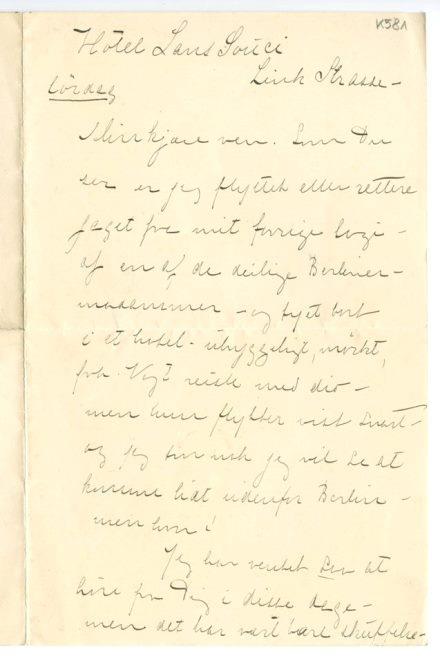 K581
Hôtel Sans Souci
Link Strasse –
Lördag
Min kjære ven. Som Du
ser er jeg flyttet eller rettere
jaget fra mit forrige logi –
af en af de deilige Berliner-
madammer – og fyet bort
i et hotel – uhyggeligt, mørkt,
frk. Vogt reiste med dit –
men hun flytter vist snart –
og jeg tror nok jeg vil se at
komme lidt udenfor Berlin –
men hvor!
Jeg har ventet sen at
høre fra Dig i disse dage –
men det har vært bare skuffelse –